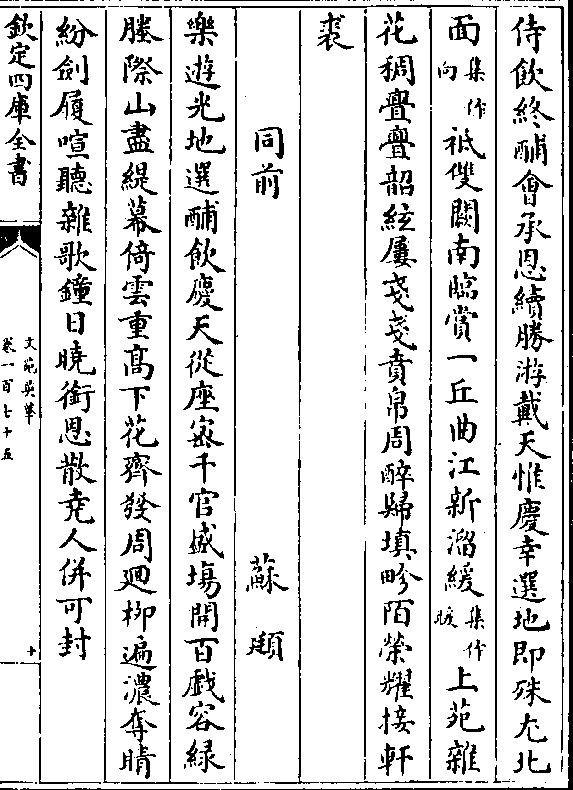 侍飲終酺會承恩續勝游戴天惟慶幸選地即殊尤北
面集作向祗雙闕南臨賞一丘曲江新溜緩集作暖上苑雜
花稠亹亹韶絃屢戔戔賁帛周醉歸填畛陌榮耀接軒
裘
同前 蘇頲
樂遊光地選酺飲慶天從座宻千官盛塲開百戲容緑
塍際山盡緹幕倚雲重髙下花齊發周廻栁遍濃奪晴
紛劍履喧聽雜歌鐘日曉銜恩散堯人併可封
欽定四庫全書
文苑英華
卷一百七十五
十